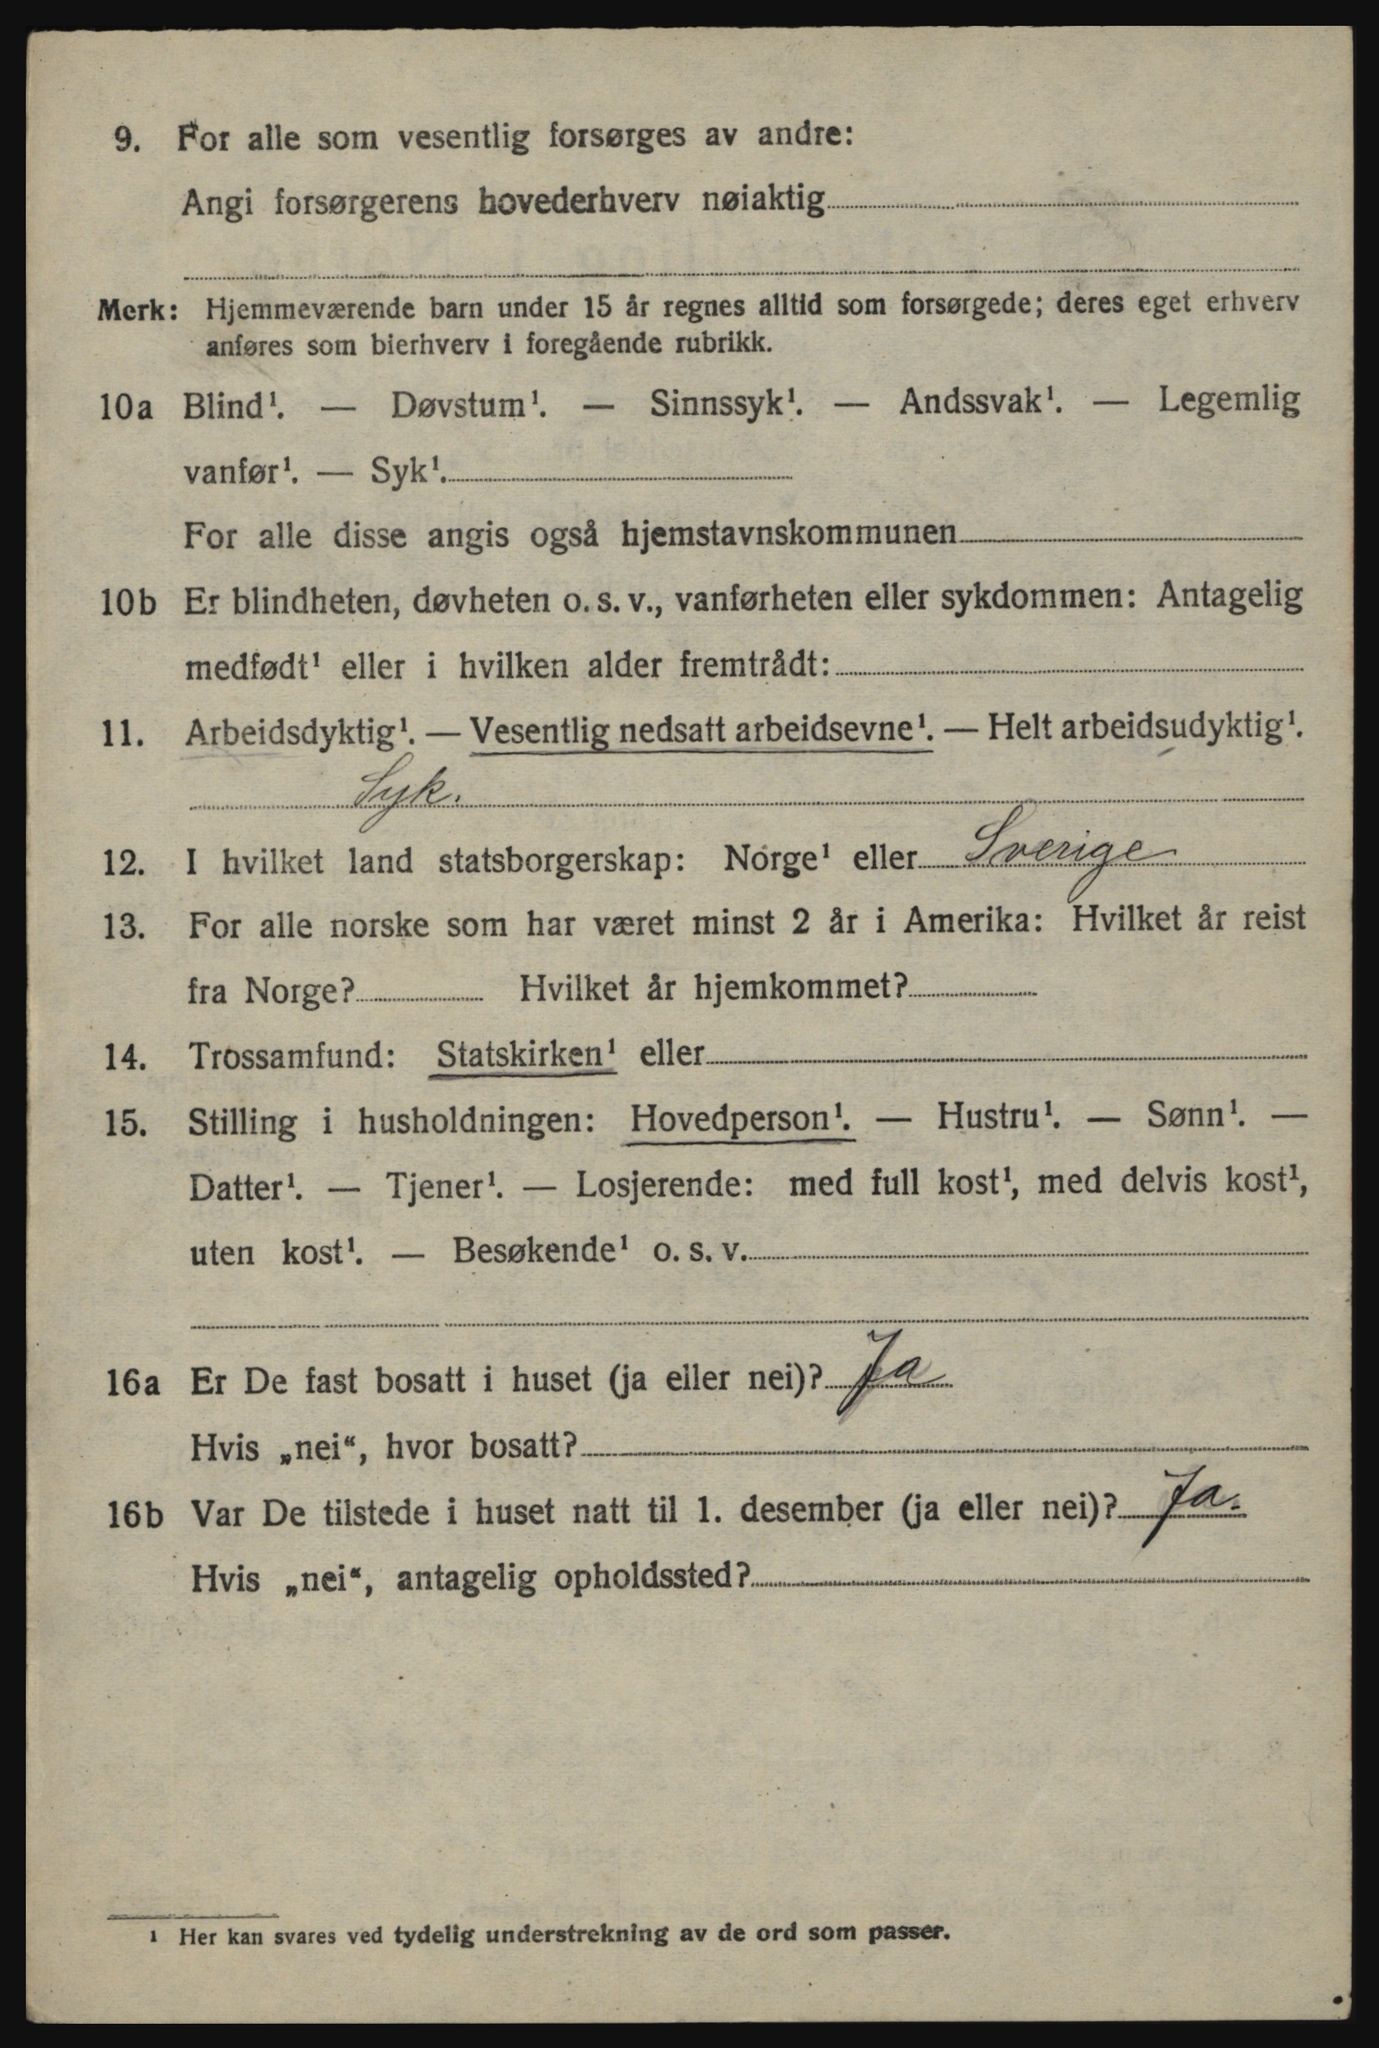 9. For alle som vesentlig forsørges av andre:
Angi forsørgerens hovederhverv nøiaktig
Merk: Hjemmeværende barn under 15 år regnes alltid som forsørgede; deres eget erhverv
anføres som bierhverv i foregående rubrikk.
10a Blind¹. — Døvstum¹. — Sinnssyk¹. — Andssvak¹. — Legemlig
vanfør¹. — Syk¹.
For alle disse angis også hjemstavnskommunen
10b Er blindheten, døvheten o. s. v., vanførheten eller sykdommen: Antagelig
medfødt¹ eller i hvilken alder fremtrådt:
11. Arbeidsdyktig¹. — Vesentlig nedsatt arbeidsevne¹. — Helt arbeidsudyktig¹.
Syk.
12. I hvilket land statsborgerskap: Norge¹ eller Sverige
13. For alle norske som har været minst 2 år i Amerika: Hvilket år reist
fra Norge? Hvilket år hjemkommet?
14. Trossamfund: Statskirken¹ eller
15. Stilling i husholdningen: Hovedperson¹. — Hustru¹. — Sønn¹. —
Datter¹. — Tjener¹. — Losjerende: med full kost¹, med delvis kost¹,
uten kost¹. — Besøkende¹ o. s. v.
16a Er De fast bosatt i huset (ja eller nei)? Ja
Hvis „nei“, hvor bosatt?
16b Var De tilstede i huset natt til 1. desember (ja eller nei)? Ja.
Hvis „nei“, antagelig opholdssted?
¹ Her kan svares ved tydelig understrekning av de ord som passer.